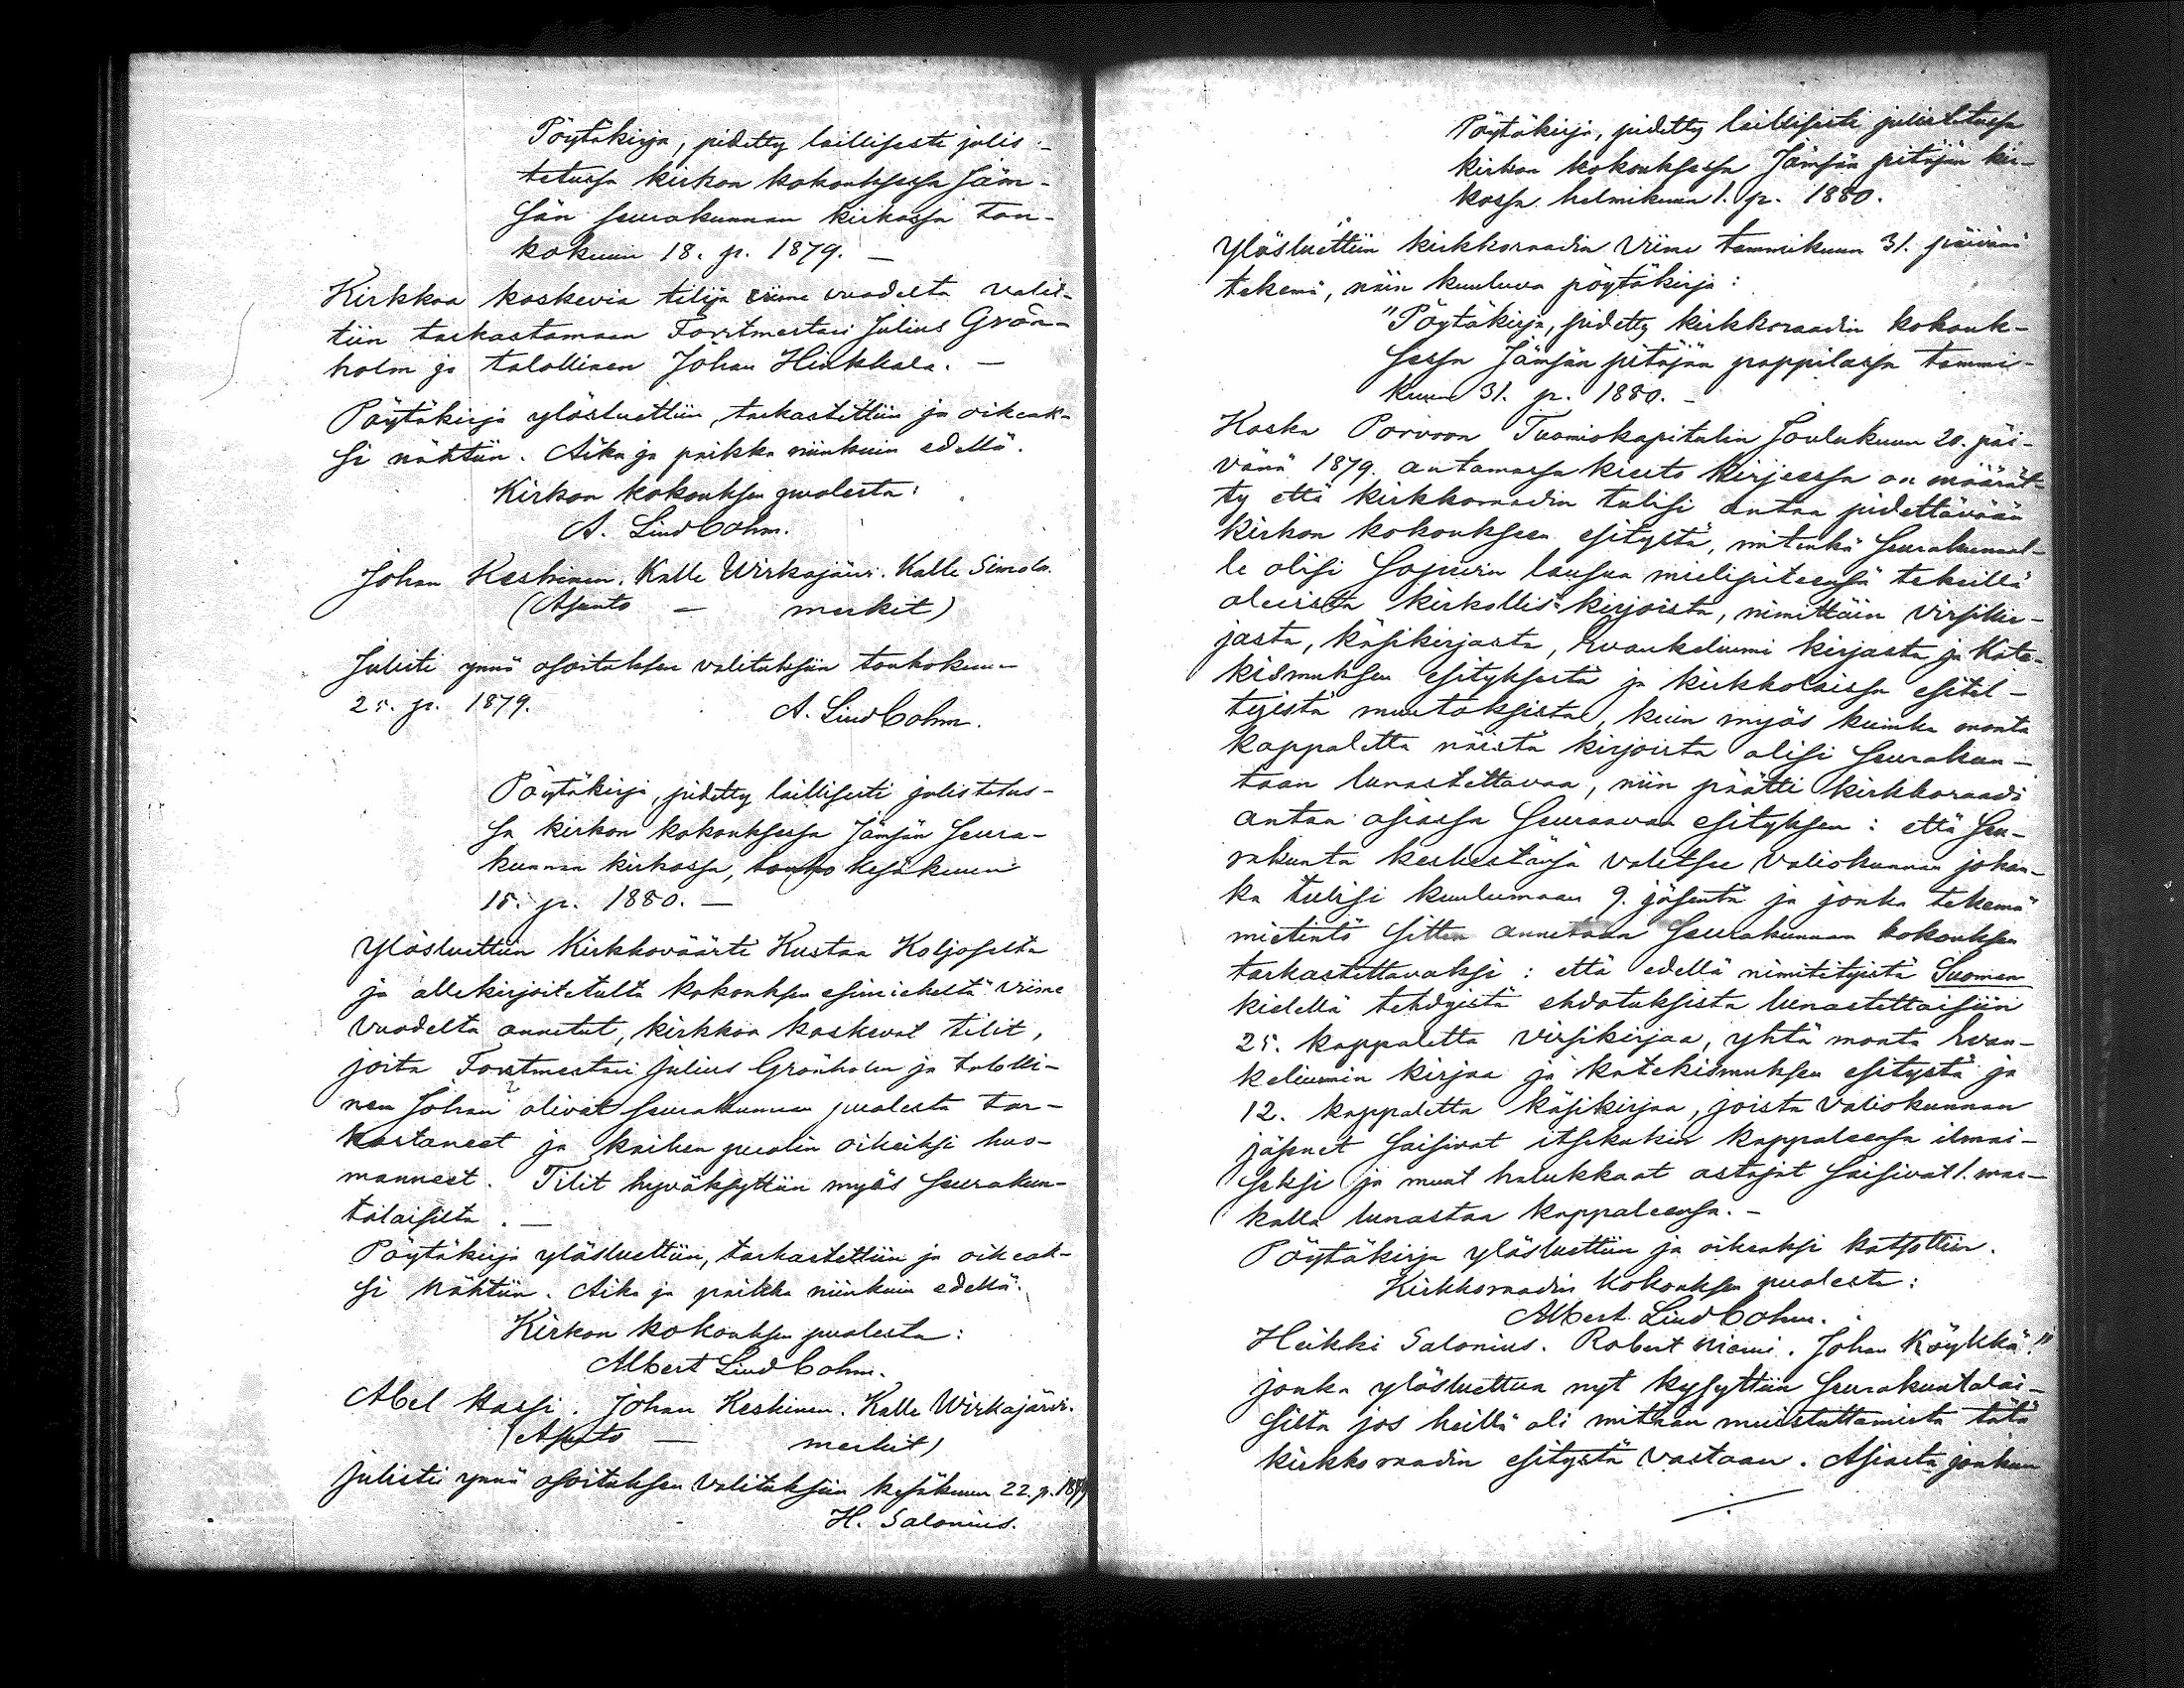 Pöytäkirja, pidetty laillisesti julis-
tetussa kirkon kokouksessa Jäm-
sän seurakunnan kirkossa tou-
kokuun 18. p. 1879. —
Kirkkoa koskevia tilijä viime vuodelta valit-
tiin tarkastamaan Forstmestari Julius Grön-
holm ja talollinen Johan Hinkkala. —
Pöytäkirja ylösluettiin, tarkastettiin ja oikeak-
si nähtiin. Aika ja paikka niinkuin edellä.
Kirkon kokouksen puolesta:
A. Lindbohm.
Johan Keskinen. Kalle Wirkajärvi. Kalle Simola.
(Asunto — merkit)
Julisti ynnä osoituksen valituksiin toukokuun
25. p. 1879.
A. Lindbohm.
Pöytäkirja, pidetty laillisesti julistetus-
sa kirkon kokouksessa Jämsän seura-
kunnan kirkossa, touko kesäkuun
15. p. 1880. —
Ylösluettiin Kirkkoväärti Kustaa Koljoselta
ja allekirjoitetulta kokouksen esimieheltä viime
vuodelta annetut, kirkkoa koskevat tilit,
joita Forstmestari Julius Grönholm ja talolli-
nen Johan ? olivat seurakunnan puolesta tar-
kastaneet ja kaiken puolin oikeiksi huo-
manneet. Tilit hyväksyttiin myös seurakun-
talaisilta. —
Pöytäkirja ylösluettiin, tarkastettiin ja oikeak-
si nähtiin. Aika ja paikka niinkuin edellä.
Kirkon kokouksen puolesta:
Albert Lindbohm.
Abel Hassi. Johan Keskinen. Kalle Wirkajärvi.
(Asunto — merkit)
Julisti ynnä osoituksen valituksiin kesäkuun 22. p. 1879
H. Salonius.
Pöytäkirja, pidetty laillisesti julistetussa
kirkon kokouksessa Jämsän pitäjän kir-
kossa helmikuun 1. p. 1880.
Ylösluettiin kirkkoraadin viime tammikuun 31. päivänä
tekemä, näin kuuluva pöytäkirja:
"Pöytäkirja, pidetty kirkkoraadin kokouk-
sessa Jämsän pitäjän pappilassa tammi-
kuun 31. p. 1880. —
Koska Porvoon Tuomiokapitulin Joulukuun 20. päi-
vänä 1879. antamassa kierto kirjeessa on määrät-
ty että kirkkoraadin tulisi antaa pidettävään
kirkon kokoukseen esitystä, mitenkä seurakunnal-
le olisi sopivin lausua mielipiteensä tekeillä
olevista kirkollis-kirjoista, nimittäin virsikir-
jasta, käsikirjasta, Evankeliumi kirjasta ja Kate-
kismuksen esityksestä ja kirkkolaissa esitel-
tyistä muutoksista, kuin myös kuinka monta
kappaletta näistä kirjoista olisi seurakun-
taan lunastettavaa, niin päätti kirkkoraadi
antaa asiassa seuraavan esityksen: että seu-
rakunta keskestänsä valitsee valiokunnan johon-
ka tulisi kuulumaan 9. jäsentä ja jonka tekemä
mietintö sitten annetaan seurakunnan kokouksen
tarkastettavaksi: että edellä nimitetyistä Suomen
kielellä tehdyistä ehdotuksista lunastettaisiin
25. kappaletta virsikirjaa, yhtä monta Evan-
keliumin kirjaa ja katekismuksen esitystä ja
12. kappaletta käsikirjaa, joista valiokunnan
jäsenet saisivat itsekukin kappaleensa ilmai-
seksi ja muut halukkaat ostajat saisivat 1. mar-
kalla lunastaa kappaleensa. —
Pöytäkirja ylösluettiin ja oikeaksi katsottiin.
Kirkkoraadin kokouksen puolesta:
Albert Lindbohm.
Heikki Salonius. Robert Niemi. Johan Köykkä."
jonka ylösluettua nyt kysyttiin seurakuntalai-
silta jos heillä oli mitään muistuttamista tätä
kirkkoraadin esitystä vastaan. Asiasta jonkun